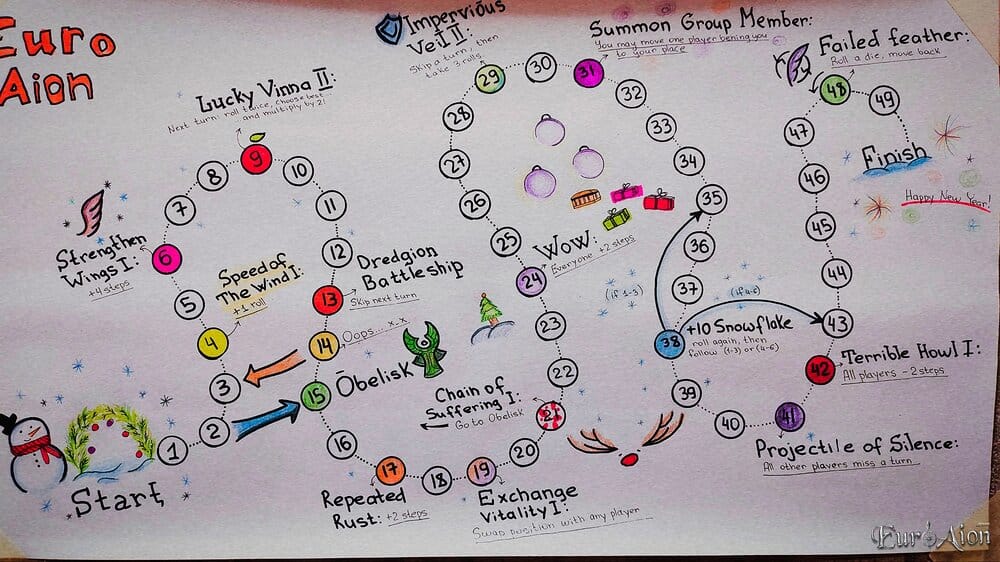 Euro
Aion
Start
1
2
3
4
Speed of
The Wind I:
+1 roll
5
6
Strengthen
Wings I:
+4 steps
7
8
9
Lucky Vinna II:
Next turn: roll twice, choose best
and multiply by 2!
10
11
12
13
Dredgion
Battleship
Skip next turn
14
Oops... x.x
15
Obelisk
16
17
Repeated
Rust: +2 steps
18
19
Exchange
Vitality I:
Swap position with any player
20
21
Chain of
Suffering I:
Go to Obelisk
22
23
24
Wow:
Everyone +2 steps
25
26
27
28
29
Impervious
Veil II:
Skip a turn, then
take 3 rolls.
30
31
Summon Group Member:
You may move one player bening you
to your place
32
33
34
35
36
37
38
+10 Snowflake
roll again, then
follow (1-3) or (4-6)
(if 1-3)
(if 4-6)
39
40
41
Projectile of Silence:
All other players miss a turn
42
Terrible Howl I:
All players -2 steps
43
44
45
46
47
48
Failed feather:
Roll a die, move back
49
Finish
Happy New Year!
EuroAion